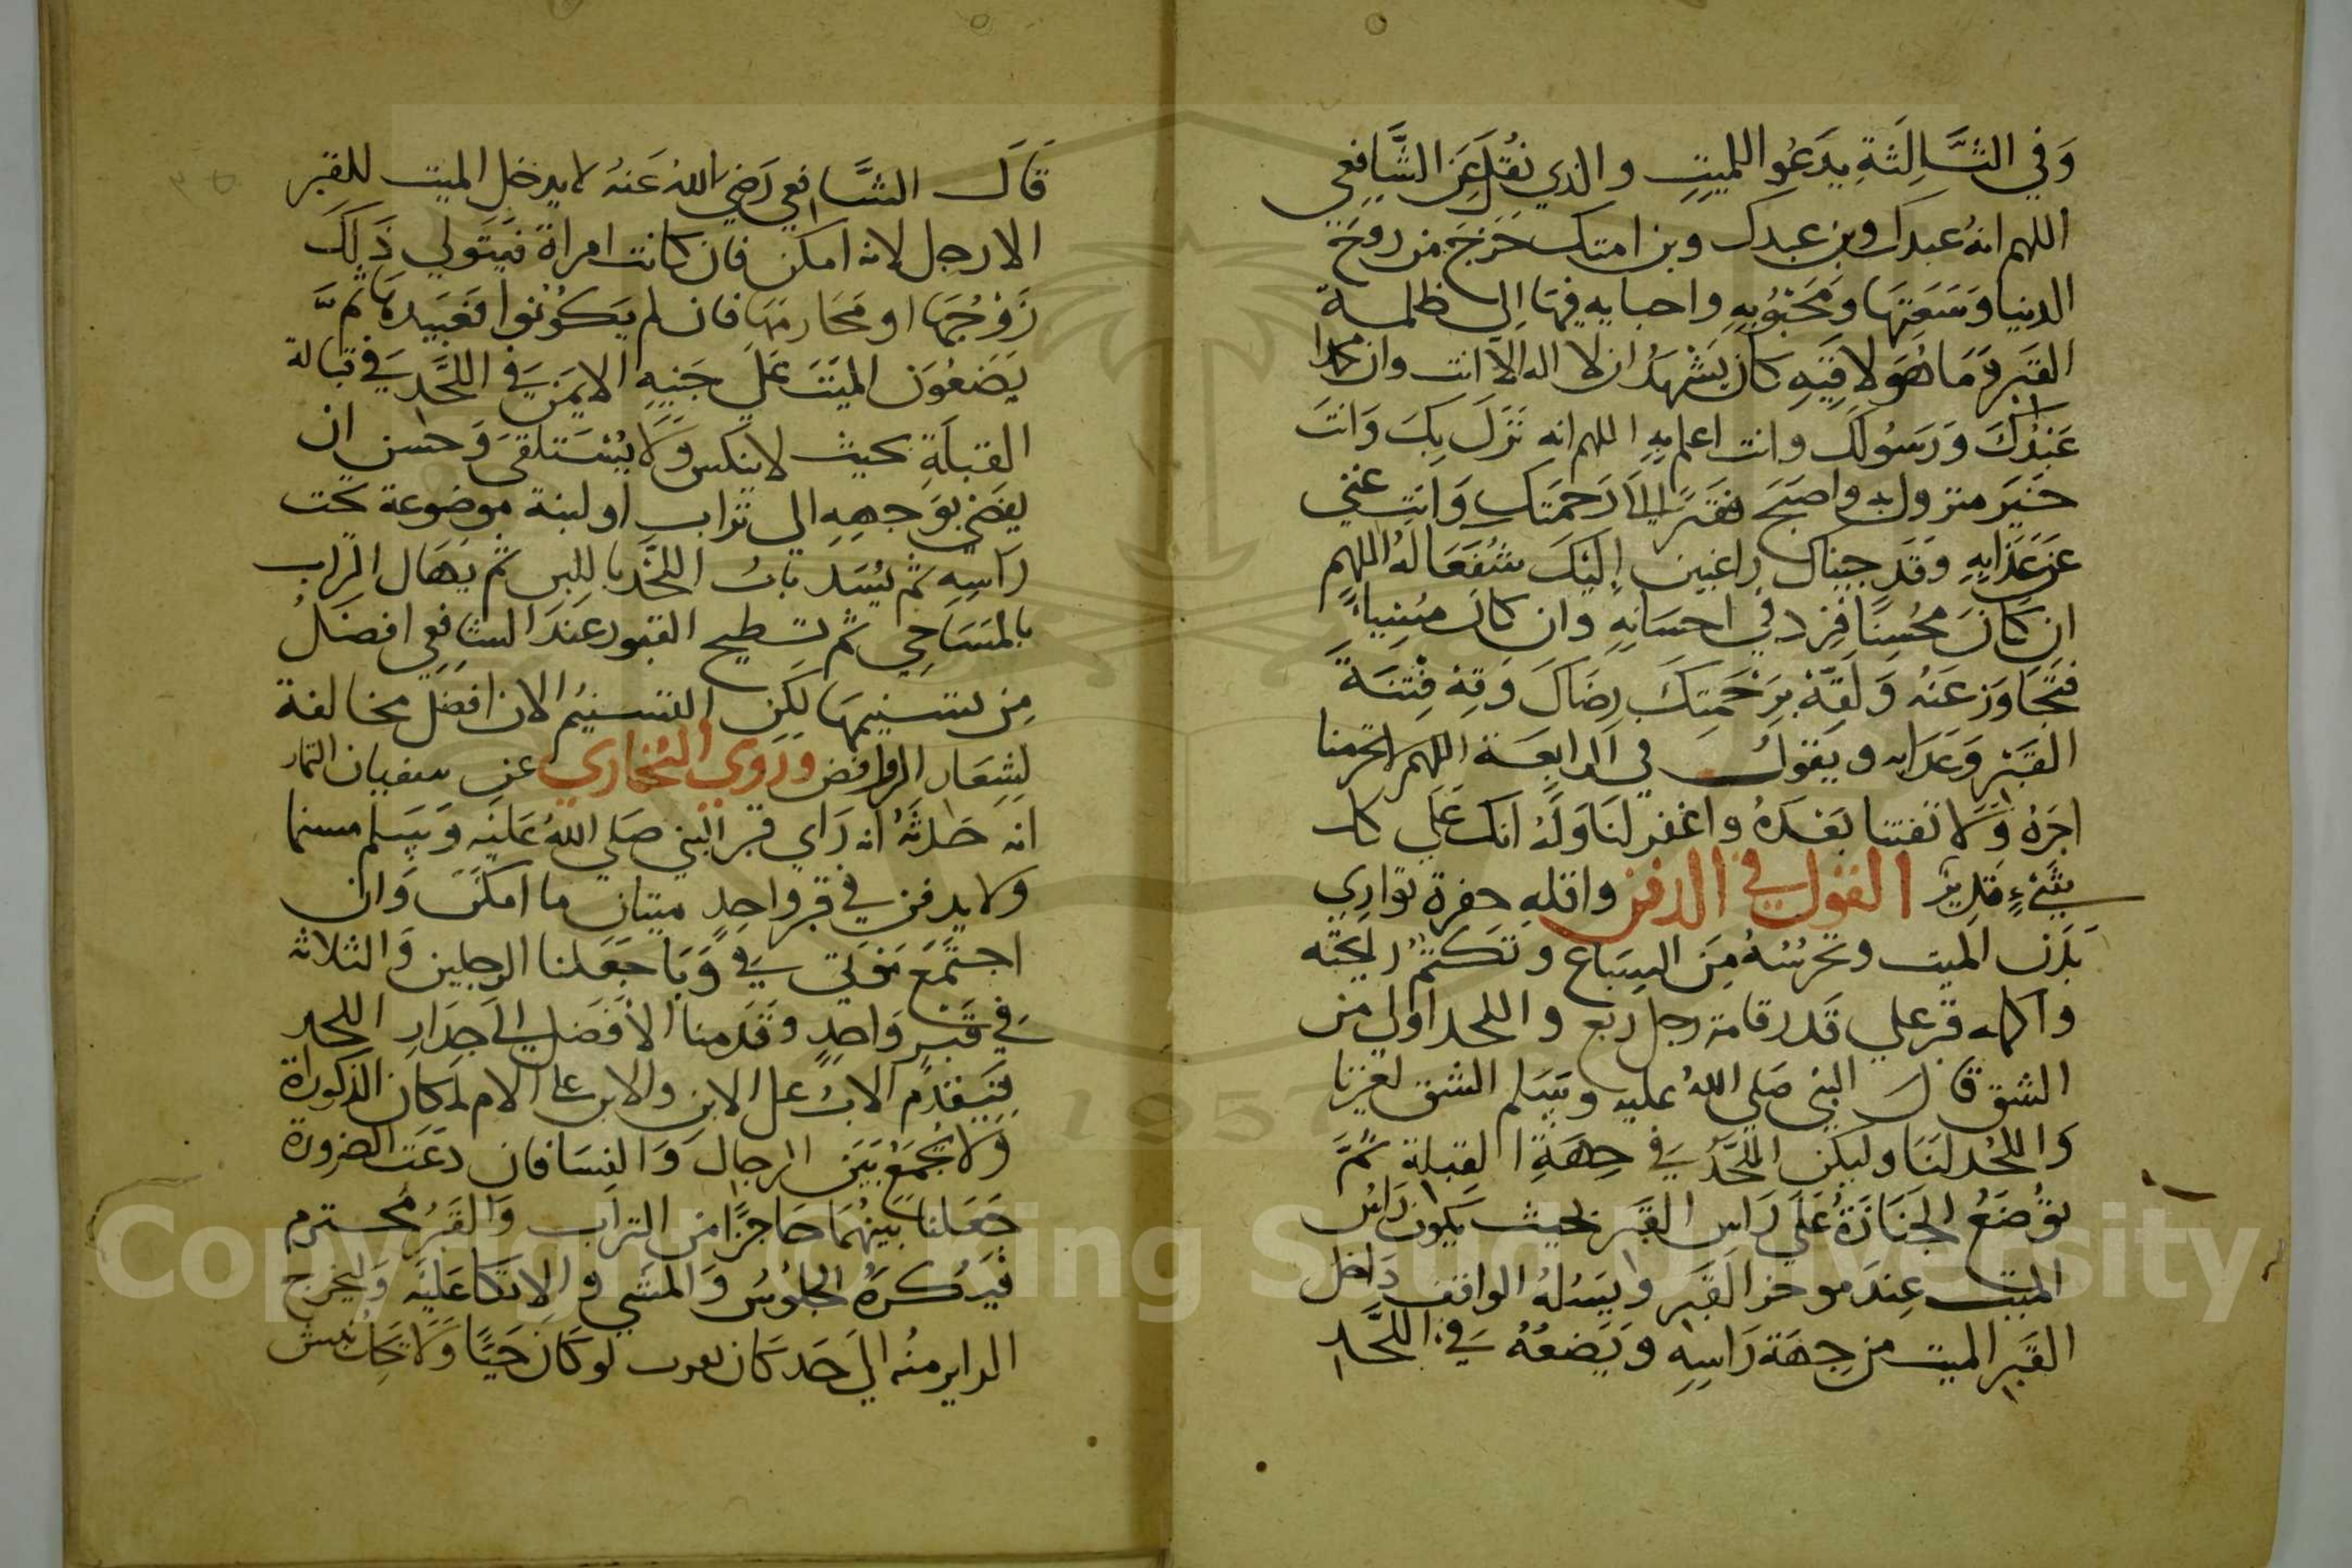 وَفي الثَّالِثَةِ يدَعُوا للميتِ والذي نقُلَ عَنِ الشَّافِعي
اللهم انهُ عبدك وبن عبدك وبن امتك خَرَجَ من روح
الدنيا وَسَعَتِهَا ومَحَبُوبِهِ واحبايه فِيهَا اِلى ظلمة
القبَر وَمَا هُوَ لاقِيَهِ كان يَشْهَدُ ان لا اله الا انت وان محمدا
عَبْدُكَ وَرَسُولك وانت اعلم بِهِ اللهم انه نَزَلَ بِكَ وَانتَ
خَيَر منزول به واصبَح فقيرًا اِلىَ رَحمَتك وَانت غني
عَن عَذَابِهِ وَقَد جيناك راغبين اِليَكَ شُفَعَا لهُ اللهم
ان كَانَ محُسِنًا فزد في احسَانِهِ وان كان مُسِيا
فتَجَاوَز عَنهُ وَلَقِّهْ بِرَحْمَتِكَ رِضَاكَ وَقِهْ فِتْنَةَ
القَبَر وَعَذابه ويَقول في الرابعَة اللهم لا تحرمنا
اجرَهُ وَلا تفتنا بَعَدَهُ واغفر لنَا وَلَهُ انك عَلَى كل
شَيْءٍ قَدِيرٌ القول في الدفن واقلهِ حفرة توَارِي
بَدَن الميت وتحرُسُهُ مِنَ السِبَاع وتَكتُم رايحته
واكمله قبر علي قَدر قامة رجل ربع واللحد اولي من
الشق قال النبي صَلى اللهُ عليه وسَلم الشق لغيرنا
وَاللحُد لنَنَا وليكن اللَّحَدُ في جِهَةِ القِبلة ثُمَّ
توُضَعُ الجنَازَةُ عَلَى رَاسِ القَبَر بحيث يكون رَاسُ
الميت عِندَ موخر القَبَر ويَسُلهُ الواقف دَاخل
القَبَر الميت من جِهَة رَاسِهِ وَيَضعُهُ في اللَّحَدِ
قَالَ الشَّافعي رَضي اللهُ عَنهُ لا يدخل الميت للقبِر
الا رجل لانه امكن فان كانت امراة فيَتَولي ذَلِكَ
زَوجُهَا او مَحَارمَهَا فان لم يَكوُنوُا فعَبيدهَا ثمَّ
يَضَعُوَن الميَّتَ عَلي جَنبِهِ الايمَن في اللَّحَد في قبالة
القبلَةِ بحيث لا ينكس وَلا يُسَتلقىَ وَحسن ان
يفضي بوَجهِهِ الى تراب او لبنة موضوعة تحت
رَاسِهِ ثم يُسَد بابُ اللحَّد باللبن ثم يهَال التراب
بالمسَاحِي ثم تسطيح القبور عنَدَ الشافعي افضَلُ
مِن تسنيمهَا لَكِن التسنيمُ الان افضَل مخالفة
لِشِعَار الروافض ورَوي البُخاري عن سفيان التمار
انه حَدثهُ انه رَاي قبر النبي صَلى اللهُ عَليَه وَسَلم مسنما
ولا يدفن في قبر واحِدٍ ميتان ما امكَنَ وَان
اجتَمَعَ مَوتى في وَبَا جَعَلنا الرجلين وَالثلاثه
في قَبَرٍ وَاحِدٍ وقَدمنا الافَضل اِلى جِدَارِ اللحد
فَيَقَدم الابُ عل الابن والابن على الام لمكان الذكوراة
وَلا يُجمَعُ بَيَن الرجال وَالنِسَا فان دَعَت الضرورة
جَعَلنا بَيَنهُمَا حَاجِزًا من الترَاب وَالقَبَرُ محُترم
فَيُكرَهُ الجلُوسُ وَالمَشي والاتكا عَليَه وَليخرج
الزاير منُه الىَ حَد كَان يقرب لوَ كَان حَيًا وَلا يجَُاز نبش
Copyright © King Saud University
1957